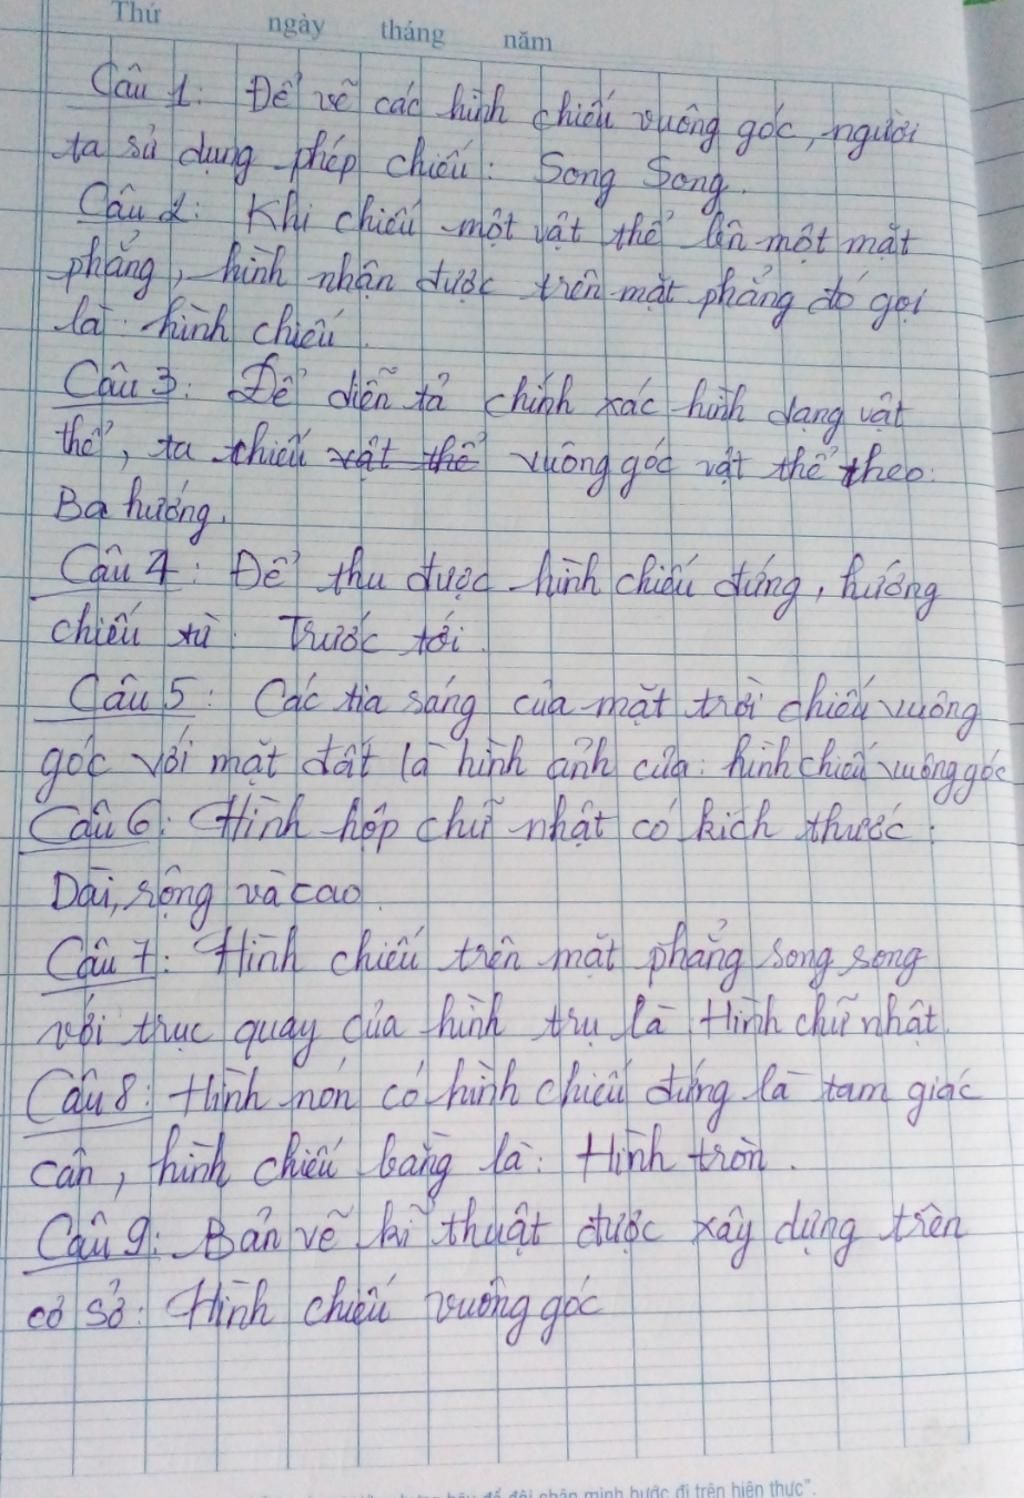 Thứ ngày tháng năm
Câu 1: Để vẽ các hình chiếu vuông góc, người
ta sử dụng phép chiếu: Song Song.
Câu 2: Khi chiếu một vật thể lên một mặt
phẳng, hình nhận được trên mặt phẳng đó gọi
là: hình chiếu.
Câu 3: Để diễn tả chính xác hình dạng vật
thể, ta chiếu vật thể vuông góc vật thể theo:
Ba hướng.
Câu 4: Để thu được hình chiếu đứng, hướng
chiếu từ: Trước tới.
Câu 5: Các tia sáng của mặt trời chiếu vuông
góc với mặt đất là hình ảnh của: hình chiếu vuông góc
Câu 6: Hình hộp chữ nhật có kích thước:
Dài, rộng và cao.
Câu 7: Hình chiếu trên mặt phẳng song song
với trục quay của hình trụ là Hình chữ nhật.
Câu 8: Hình nón có hình chiếu đứng là tam giác
cân, hình chiếu bằng là: Hình tròn.
Câu 9: Bản vẽ kĩ thuật được xây dựng trên
cơ sở: Hình chiếu vuông góc
để đôi chân mình bước đi trên hiện thực".